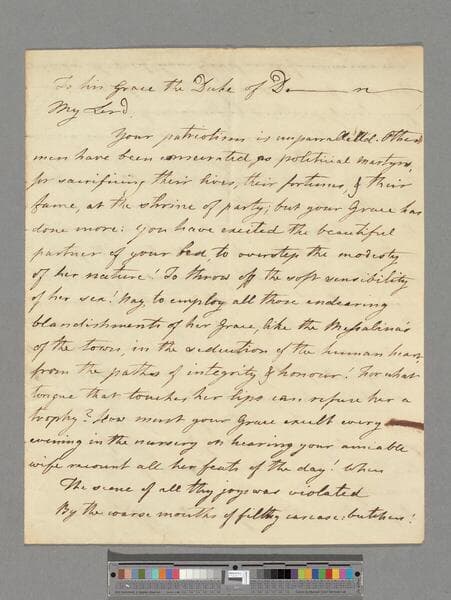 To his Grace the Duke of De——n——
My Lord.
Your patriotism is unparralelled. Other
men have been consecrated, as political martyrs,
for sacrificing their lives, their fortunes, & their
fame, at the shrine of party; but your Grace has
done more: you have excited the beautiful
partner of your bed, to overstep the modesty
of her nature! To throw off the soft sensibility
of her sex! Nay to employ all those endearing
blandishments of her Grace, like the Messalina's
of the town, in the seduction of the human heart
from the paths of integrity & honour! For what
tongue that touches her lips can refuse her a
trophy? How must your Grace exult every
evening in the nursery on hearing your amiable
wife recount all her feats of the day! When
The scene of all thy joys was violated
By the coarse mouths of filthy carcase: butchers!